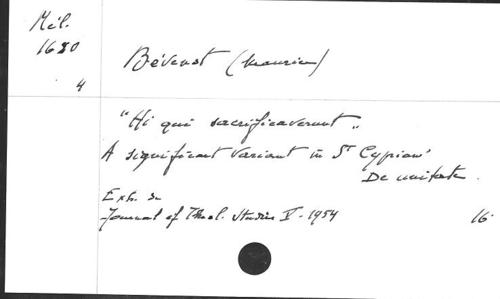 Mél.
1680
4
Bévenot (Maurice)
"Hi qui sacrificaverunt"
A significant variant in St Cyprian'
De unitate
Extr. du
Journal of Theol. Studies V - 1954
16